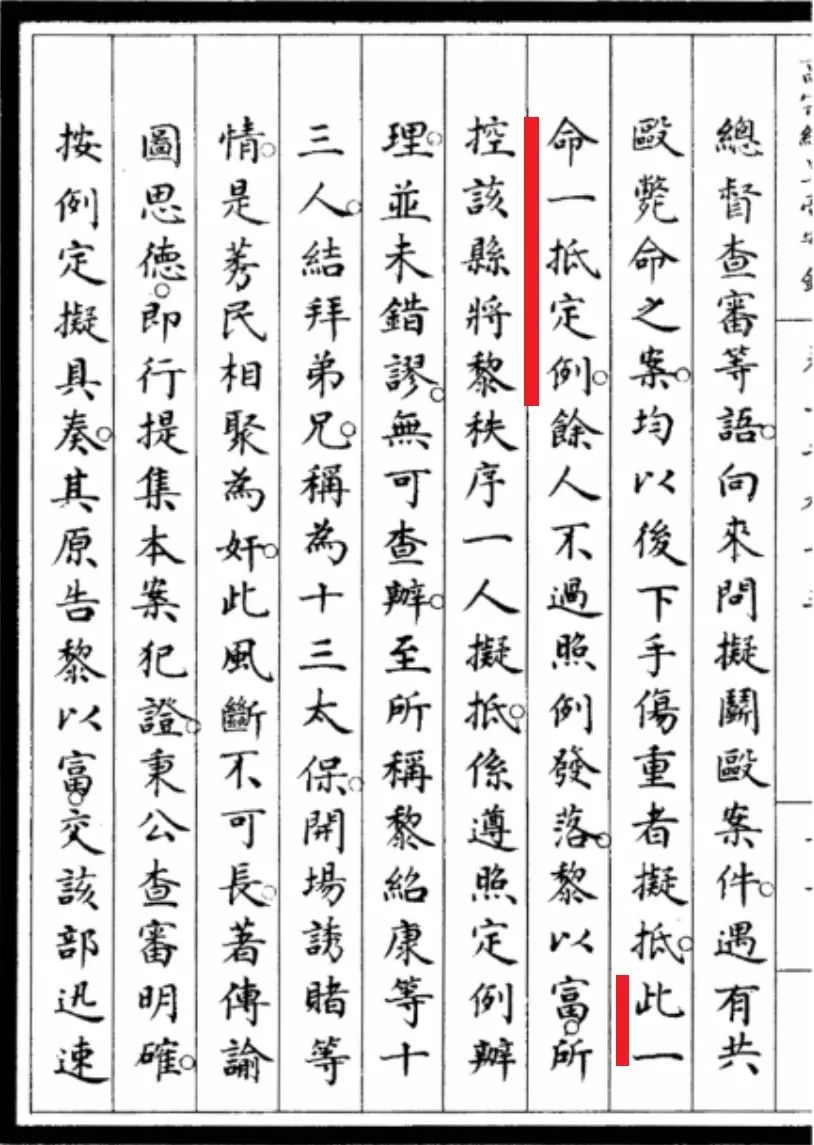 總督查審等語。向來問擬鬬毆案件。遇有共
毆斃命之案。均以後下手傷重者擬抵。此一
命一抵定例。餘人不過照例發落。黎以富。所
控該縣將黎秩序一人擬抵。係遵照定例辦
理。並未錯謬。無可查辦。至所稱黎紹康等十
三人。結拜弟兄。稱為十三太保。開場誘賭等
情。是莠民相聚為奸。此風斷不可長。著傳諭
圖思德。即行提集本案犯證。秉公查審明確。
按例定擬具奏。其原告黎以富。交該部迅速